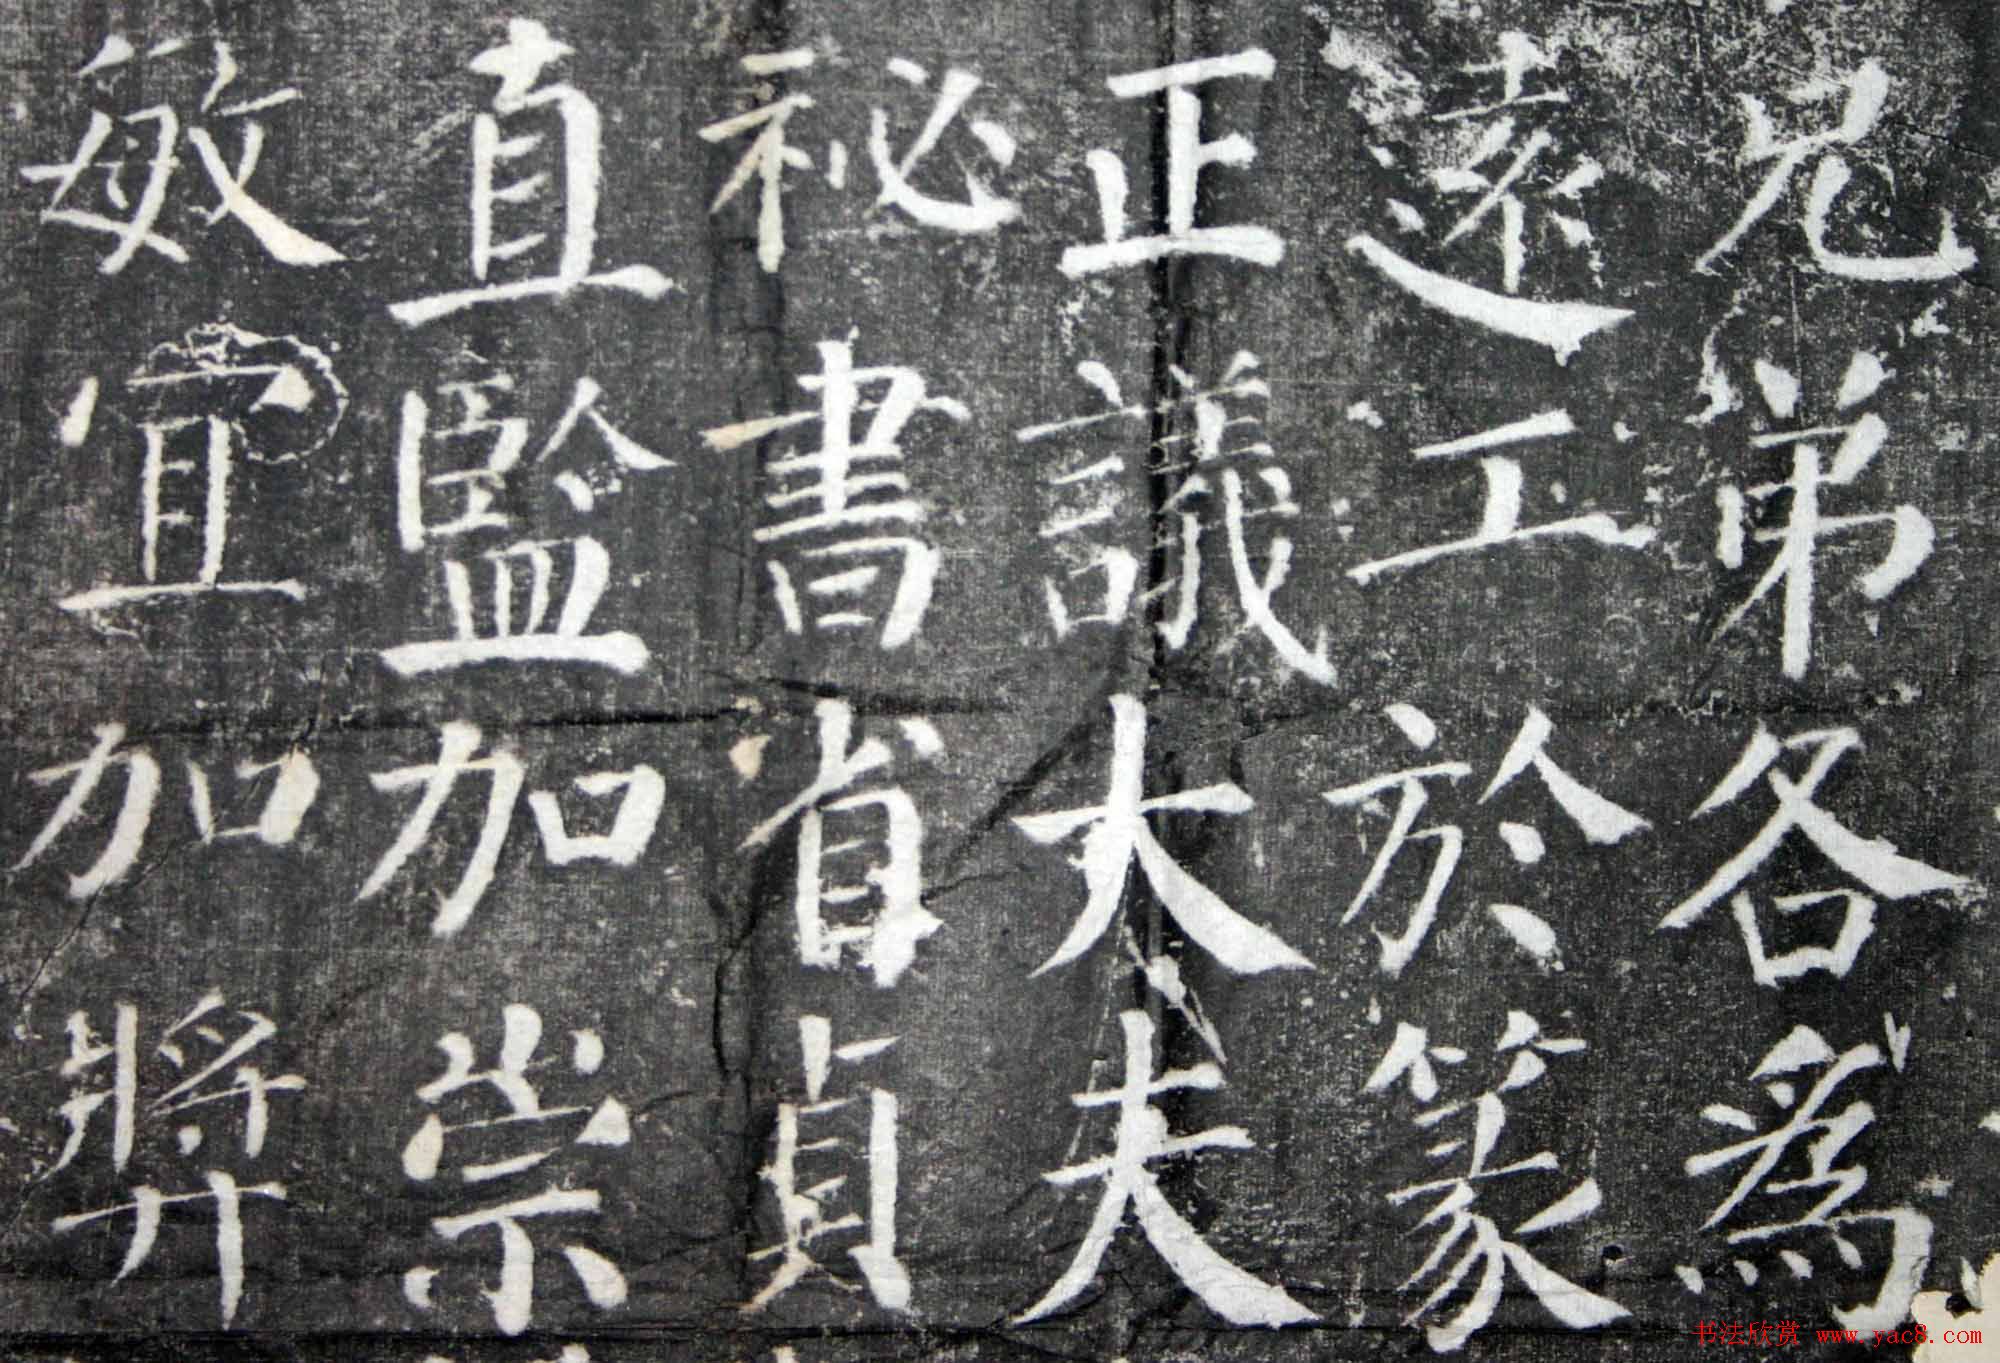 兄弟各爲
遠工於篆
正議大夫
祕書省貞
直監加崇
敏宜加奬
书法欣赏 www.yac8.com